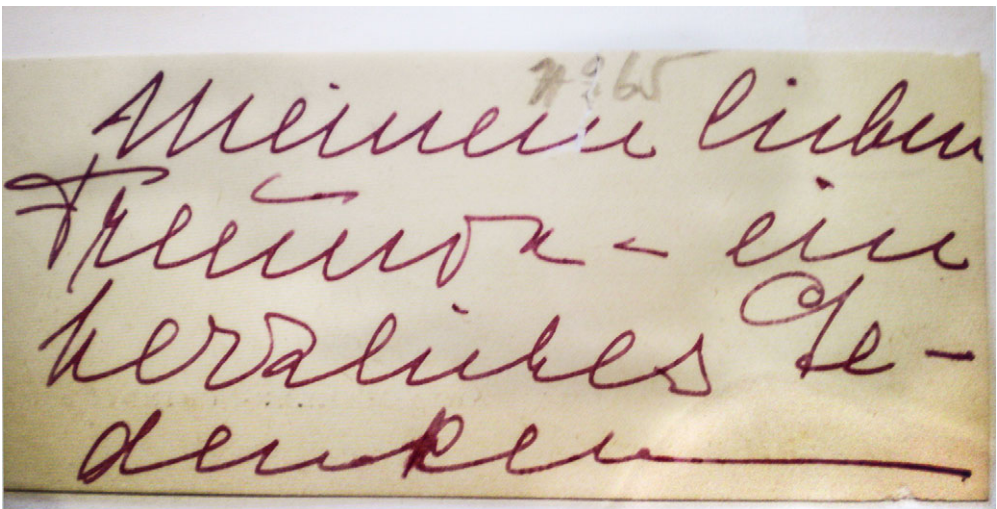 Meinem lieben
Freund – ein
herzliches Ge-
denken